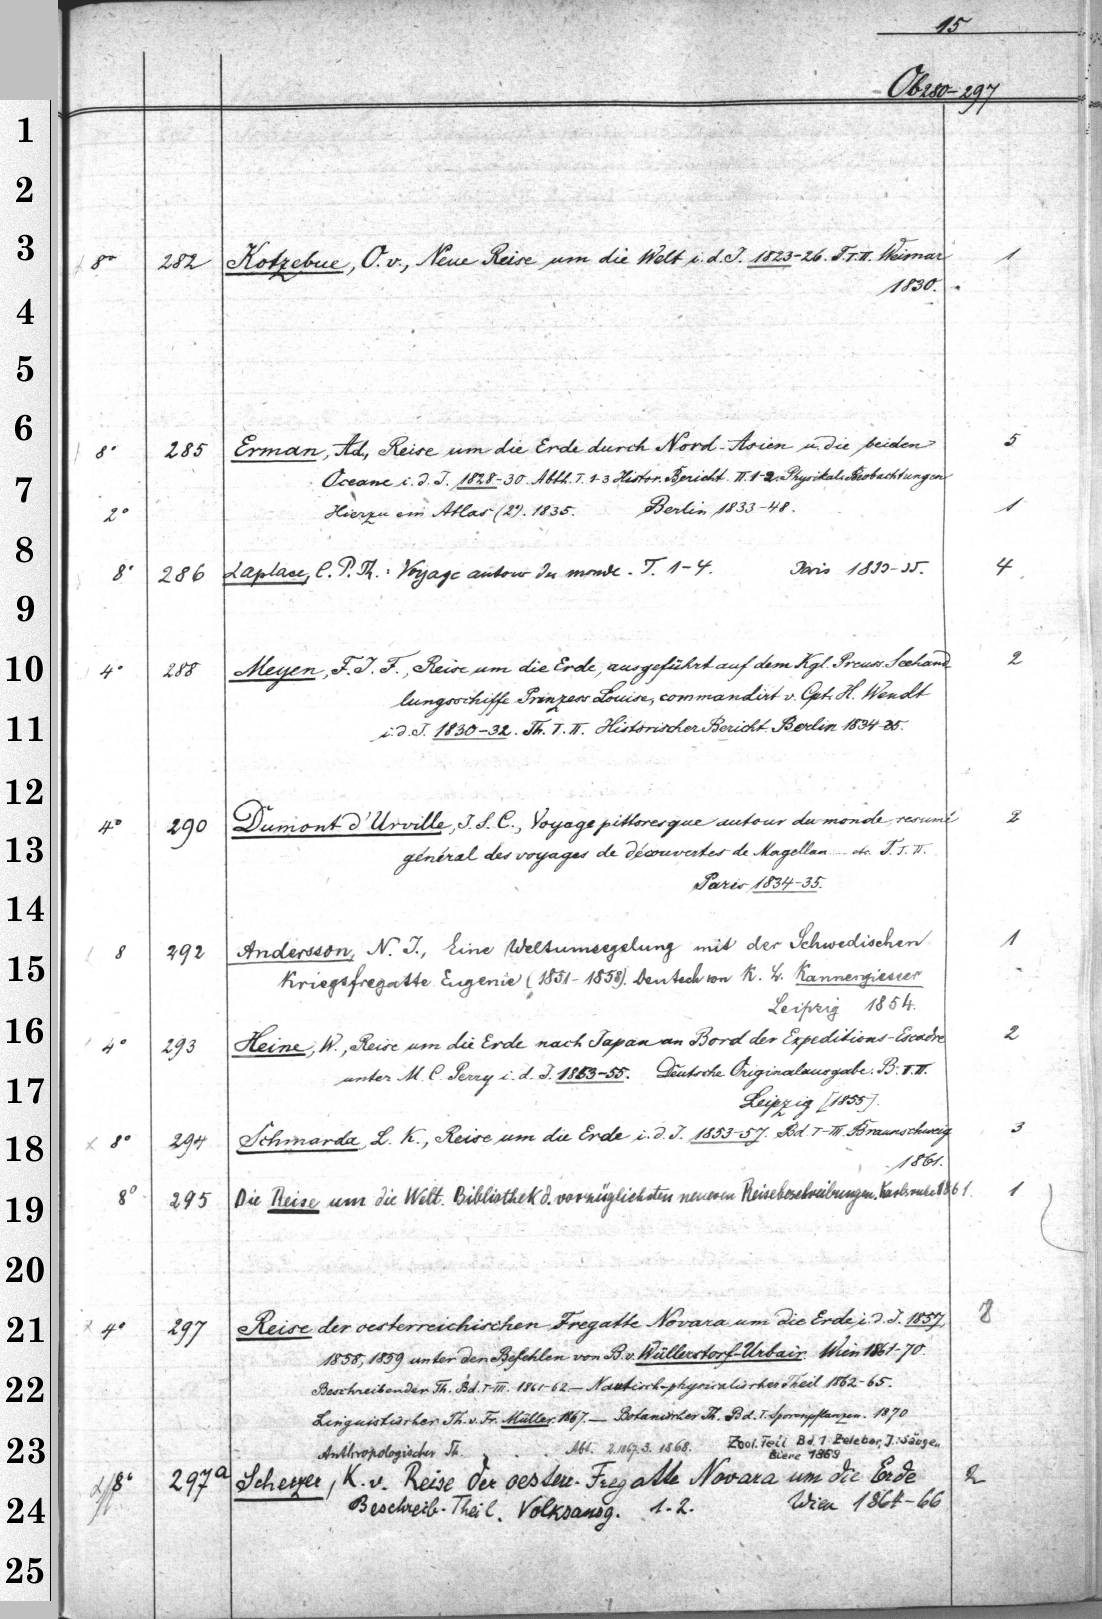 15
Ob 280-297
1
2
3
8° 282 Kotzebue, O. v., Neue Reise um die Welt i. d. J. 1823-26. T. I. II. Weimar 1
1830.
4
5
6
8° 285 Erman, Ad., Reise um die Erde durch Nord-Asien u. die beiden 5
Oceane i. d. J. 1828-30. Abth. I. 1-3 Histor. Bericht. II. 1-2. Physikal. Beobachtungen
7
2° Hierzu ein Atlas (2°). 1835. Berlin 1833-48. 1
8
8° 286 Laplace, C. P. Th.: Voyage autour du monde. T. 1-4. Paris 1833-35. 4
9
10
4° 288 Meyen, F. J. F., Reise um die Erde, ausgeführt auf dem Kgl. Preuss. Seehand 2
lungsschiffe Prinzess Louise, commandirt v. Cpt. H. Wendt
11
i. d. J. 1830-32. Th. I. II. Historischer Bericht. Berlin 1834-35.
12
4° 290 Dumont d'Urville, J. S. C., Voyage pittoresque autour du monde, resumé 2
13
général des voyages de découvertes de Magellan etc. T. I. II.
Paris 1834-35.
14
8 292 Andersson, N. J., Eine Weltumsegelung mit der Schwedischen 1
15
Kriegsfregatte Eugenie (1851-1853). Deutsch von K. L. Kannengiesser
Leipzig 1854.
16
4° 293 Heine, W., Reise um die Erde nach Japan an Bord der Expeditions-Escadre 2
17
unter M. C. Perry i. d. J. 1853-55. Deutsche Originalausgabe. B. I. II.
Leipzig [1855].
18
8° 294 Schmarda, L. K., Reise um die Erde i. d. J. 1853-57. Bd. I-III. Braunschweig 3
1861.
19
8° 295 Die Reise um die Welt. Bibliothek d. vorzüglichsten neueren Reisebeschreibungen. Karlsruhe 1861. 1
20
21
4° 297 Reise der oesterreichischen Fregatte Novara um die Erde i. d. J. 1857, 8
1858, 1859 unter den Befehlen von B. v. Wüllerstorf-Urbair. Wien 1861-70.
22
Beschreibender Th. Bd. I-III. 1861-62. — Nautisch-physicalischer Theil 1862-65.
Linguistischer Th. v. Fr. Müller. 1867. — Botanischer Th. Bd. I. Sporenpflanzen. 1870
23
Anthropologischer Th. Abt. 2. 1867. 3. 1868. Zool. Teil Bd. 1 Zelebor, J.: Säuge
tiere 1868
8° 297a Scherzer, K. v. Reise der oesterr. Fregatte Novara um die Erde 2
24
Beschreib. Theil. Volksausg. 1-2. Wien 1864-66
25